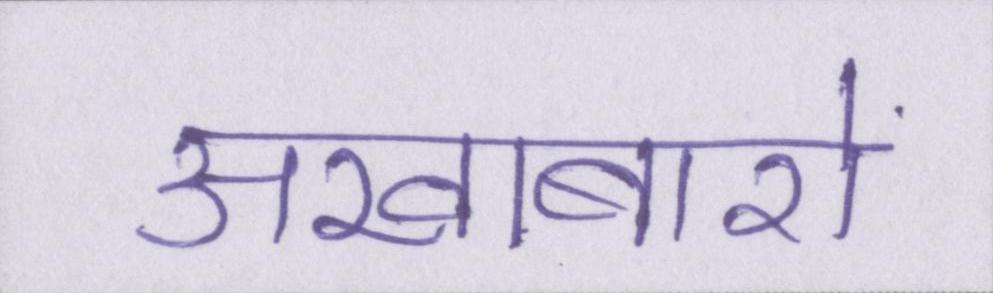 अखाबारों